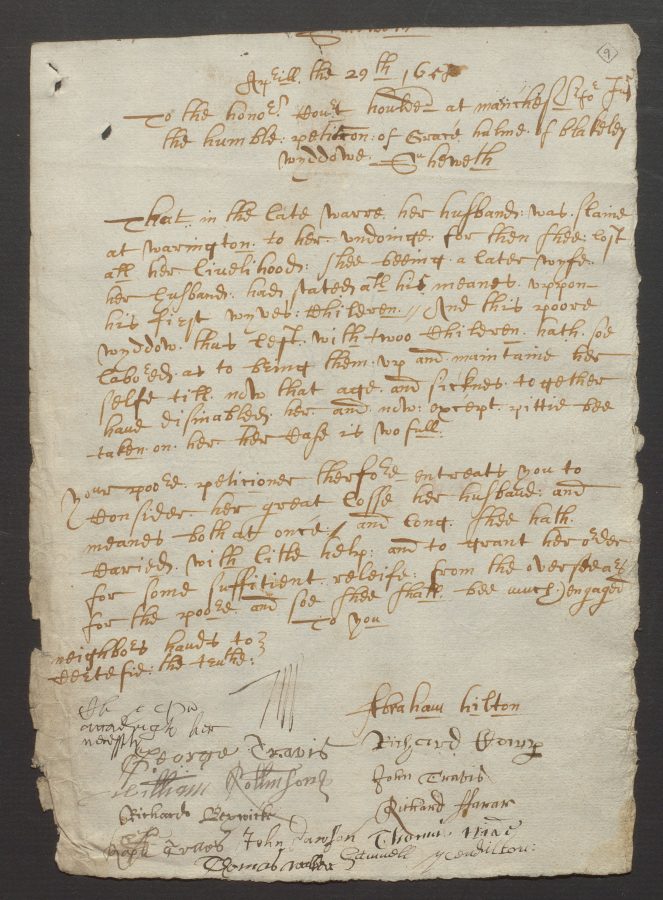 9
Aprill the 29th 165
To the honor Court houlden at manchester
the humble peticon of Grace halme of blakeley
wyddowe Sheweth
That in the late warre her husband was slaine
at warington to her undoinge for then shee lost
all her livelihood shee beeing a later wyfe
her husband had stated all his meanes uppon
his first wyves Children // And this poore
wyddow thus left with twoo Children hath soe
labored as to bring them up and maintaine her
selfe till now that age and sicknes together
have disinabled her and now except pittie bee
taken on her her Case is wofull
Your poore peticioner therfore entreats you to
Consider her great losse her husband and
meanes both at once / and long shee hath
Caried with litle help and to grant her order
for some suffitient releife from the overseears
for the poore and soe shee shall bee much engaged
To you
neighbors hands to
Certefie the truthe
her
Abraham hilton
George Travis
Richard
William Rollinsone
John Travis
Richard Berwicke
Richard ffarar
Travis
John Dawson
Thomas
Thomas
Samuell